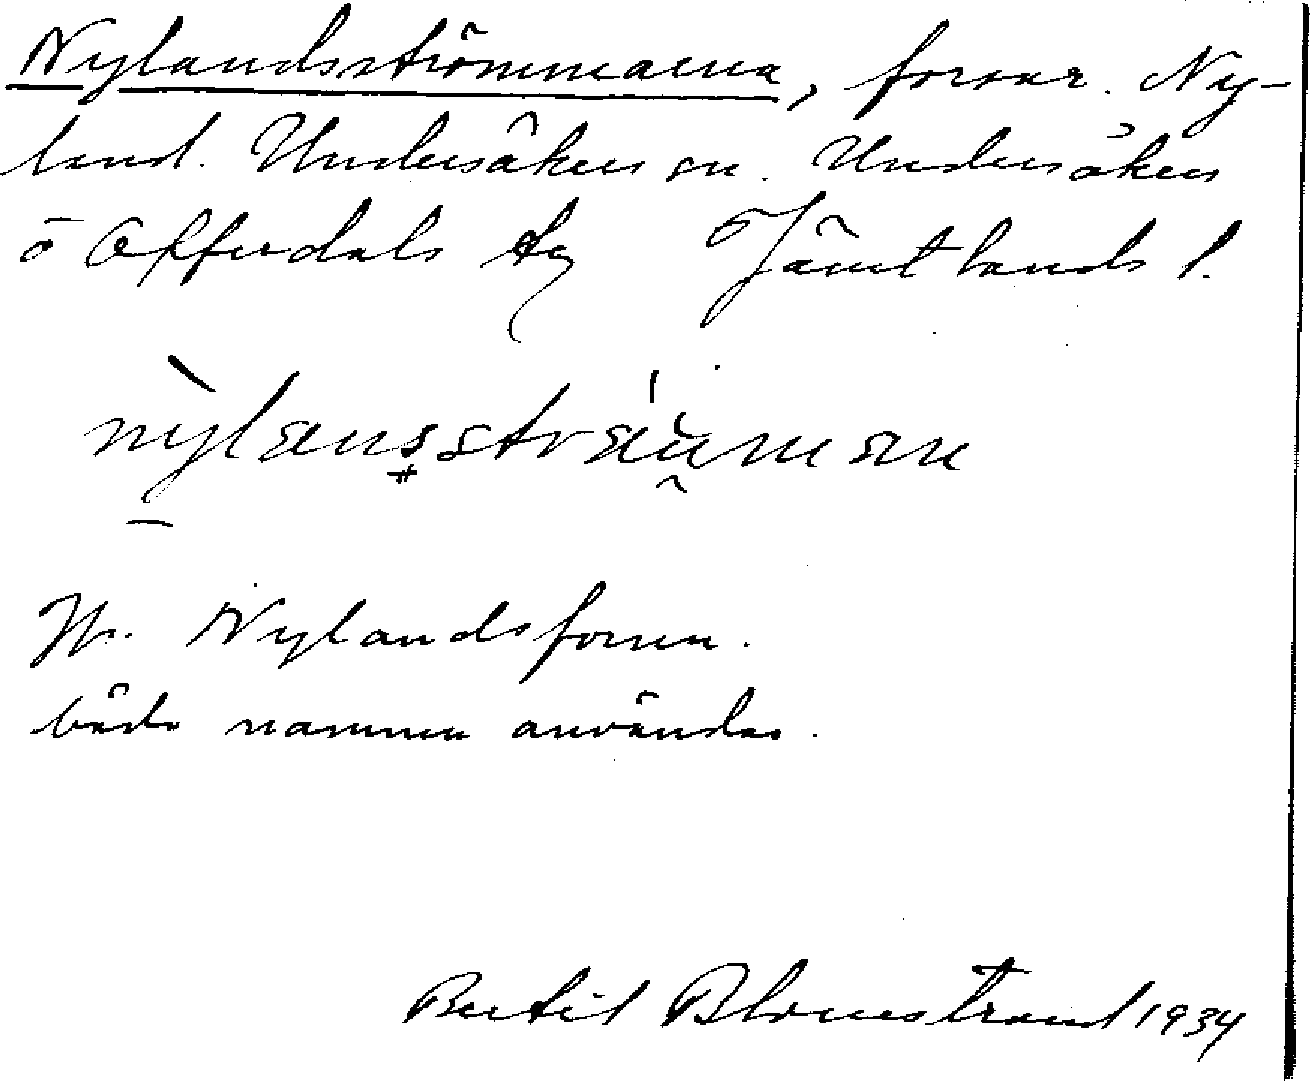 Nylandsströmmarna, forsar. Ny-
land. Undersåkers sn. Undersåkers
o Offerdals tg Jämtlands l.
nylansstrauman
Jfr. Nylandsforsen.
båda namnen användas.
Bertil Blomstrand 1934